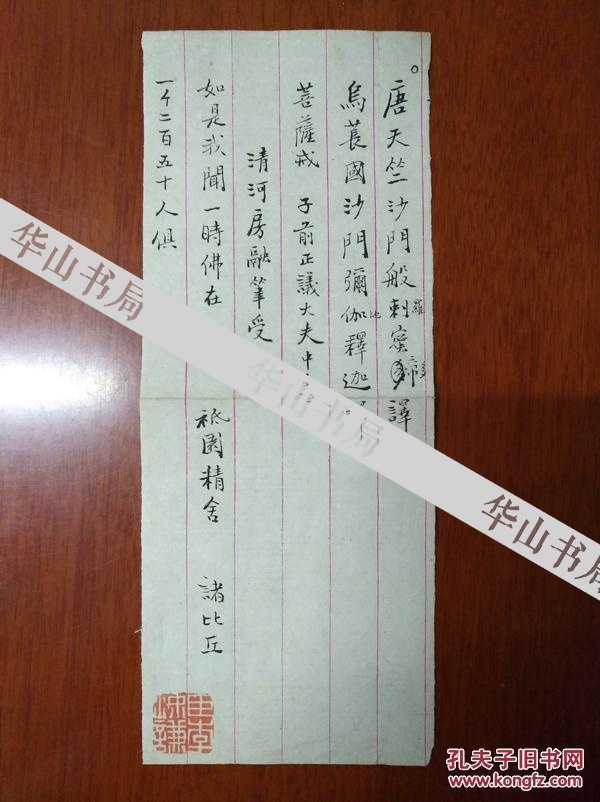 唐天竺沙門般剌蜜譯
羅
烏萇國沙門彌伽釋迦
菩薩戒 子前正議大夫中
清河房融筆受
如是我聞一時佛在 祇園精舍 諸比丘
一千二百五十人俱
华山书局
华山书局
华山书局
孔夫子旧书网
www.kongfz.com